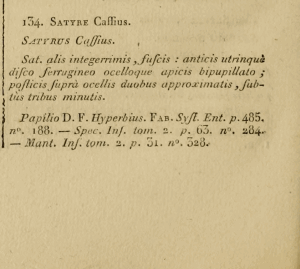 134. SATYRE Caſſius.
SATYRUS Caſſius.
Sat. alis integerrimis, fuſcis : anticis utrinquè
diſco ferrugineo ocelloque apicis bipupillato ;
poſticis ſuprà ocellis duobus approximatis, ſub-
tùs tribus minutis.
Papilio D. F. Hyperbius. FAB. Syſt. Ent. p. 485.
nº. 188. — Spec. Inſ. tom. 2. p. 63. nº. 284.
— Mant. Inſ. tom. 2. p. 31. nº. 328.